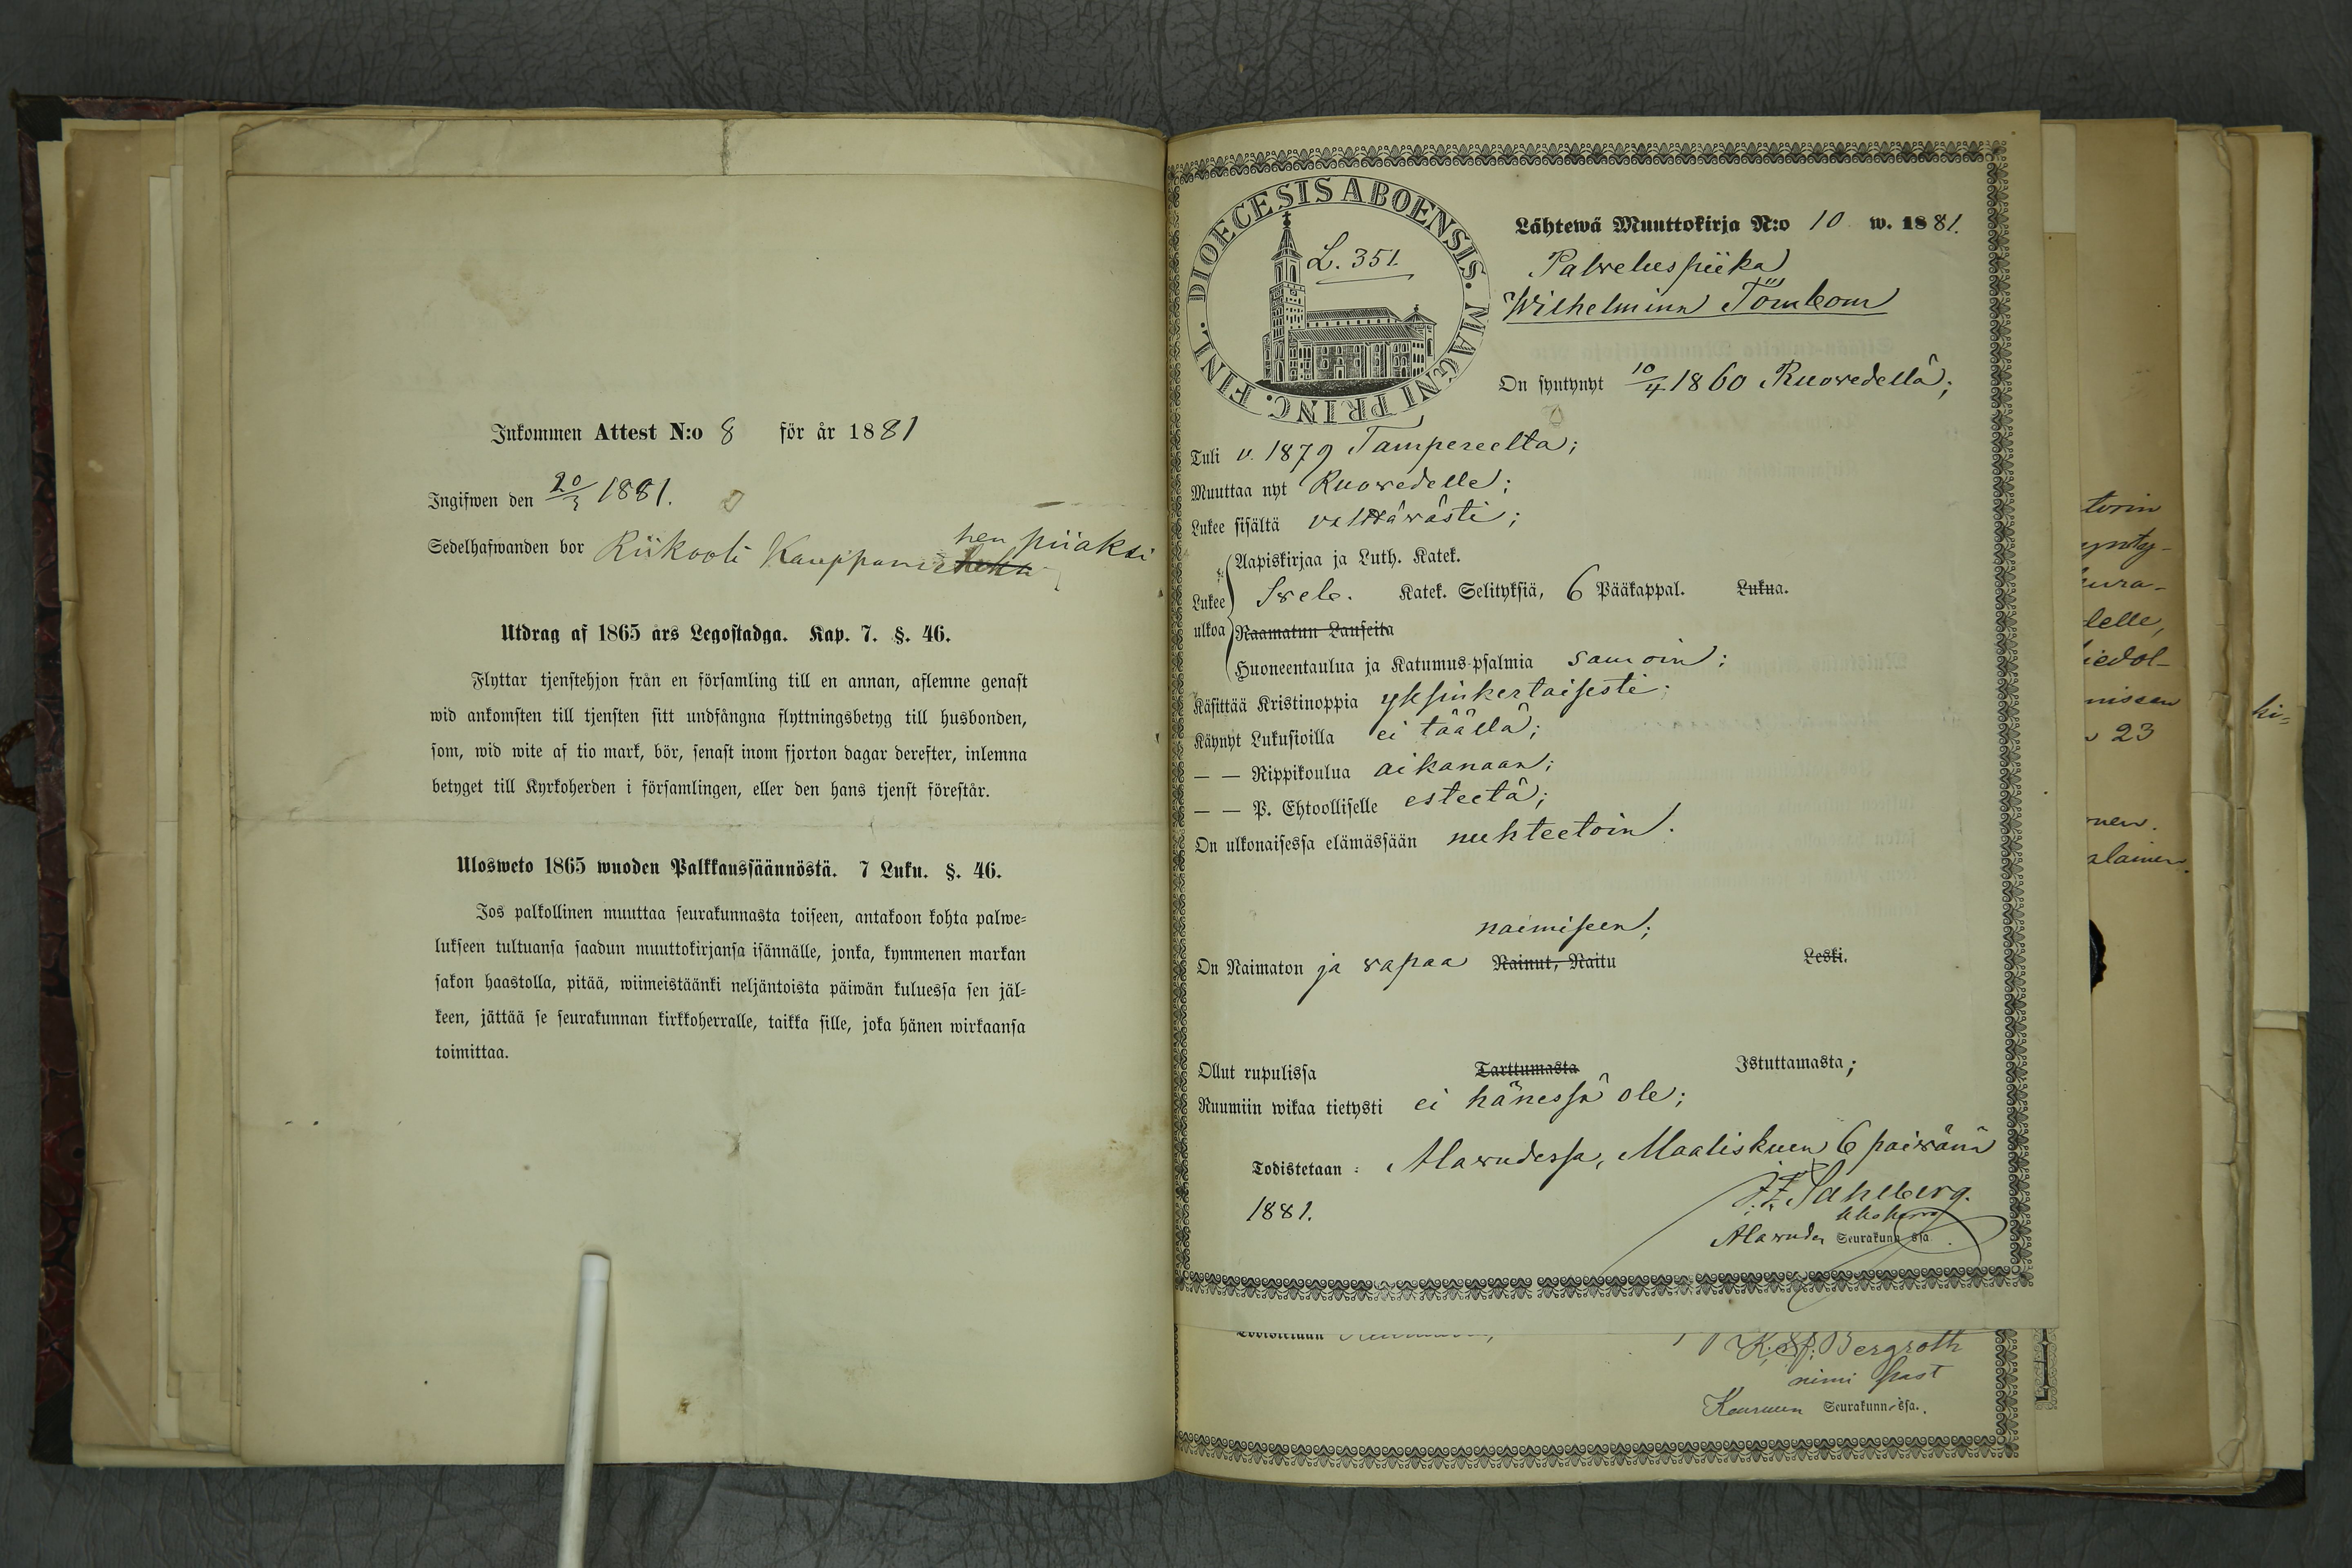 Inkommen Attest N:o 8 för år 1881
Ingifwen den 20/3 1881.
Sedelhafwanden bor Riikooli Kauppam
hen piiaksi
Utdrag af 1865 års Legostadga. Kap. 7. §. 46.
Flyttar tjenstehjon från en församling till en annan, aflemne genast
wid ankomsten till tjensten sitt undfångna flyttningsbetyg till husbonden,
som, wid wite af tio mark, bör, senast inom fjorton dagar derefter, inlemna
betyget till Kyrkoherden i församlingen, eller den hans tjenst förestår.
Ulosweto 1865 wuoden Palkkaussäännöstä. 7 Luku. §. 46.
Jos palkollinen muuttaa seurakunnasta toiseen, antakoon kohta palwe-
lukseen tultuansa saadun muuttokirjansa isännälle, jonka, kymmenen markan
sakon haastolla, pitää, wiimeistäänki neljäntoista päiwän kuluessa sen jäl-
keen, jättää se seurakunnan kirkkoherralle, taikka sille, joka hänen wirkaansa
toimittaa.
DIOECESIS ABOENSIS. MAGNI PRINC. FINL.
L. 351.
Lähtewä Muuttokirja N:o 10 w. 1881.
Palveluspiika
Wilhelmina Törnbom
On syntynyt 10/4 1860 Ruovedellä;
Tuli v. 1879 Tampereelta;
Muuttaa nyt Ruovedelle;
Lukee sisältä välttävästi;
Aapiskirjaa ja Luth. Katek.
Lukee ulkoa Sveb. Katek. Selityksiä, 6 Pääkappal. Lukua.
Raamatun Lauseita
Huoneentaulua ja Katumus-psalmia samoin;
Käsittää Kristinoppia yksinkertaisesti;
Käynyt Lukusioilla ei täällä;
— — Rippikoulua aikanaan;
— — P. Ehtoolliselle esteetä;
On ulkonaisessa elämässään nuhteetoin.
naimiseen;
On Naimaton ja vapaa Nainut, Naitu Leski.
Ollut rupulissa Tarttumasta Istuttamasta;
Ruumiin wikaa tietysti ei hänessä ole;
Todistetaan: Alavudessa, Maaliskuun 6 päivänä
1881.
F. Sahlberg.
Alavuden Seurakunnassa.
Todistetaan
Bergroth
nimi past
Keuruun Seurakunnassa.
torin
synty-
kura-
delle,
niseen
23
nen.
alainen.
hi-